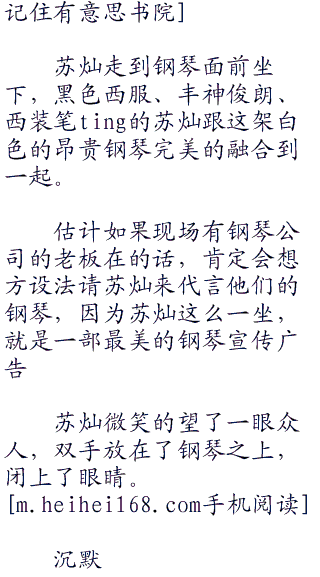 记住有意思书院]
苏灿走到钢琴面前坐
下，黑色西服、丰神俊朗、
西装笔ting的苏灿跟这架白
色的昂贵钢琴完美的融合到
一起。
估计如果现场有钢琴公
司的老板在的话，肯定会想
方设法请苏灿来代言他们的
钢琴，因为苏灿这么一坐，
就是一部最美的钢琴宣传广
告
苏灿微笑的望了一眼众
人，双手放在了钢琴之上，
闭上了眼睛。
[m.heihei168.com手机阅读]
沉默